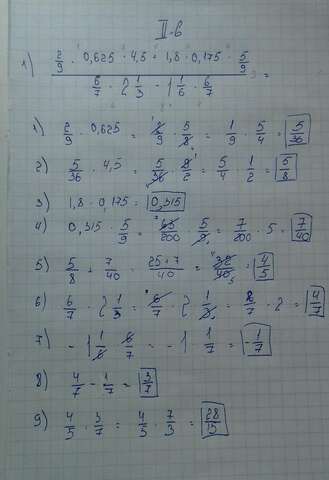 II-в
1) (2/9 · 0,625 · 4,5 + 1,8 · 0,175 · 5/9) / (6/7 · 2 1/3 - 1 1/6 · 6/7) =
1) 2/9 · 0,625 = 2/9 · 5/8 = 1/9 · 5/4 = 5/36
2) 5/36 · 4,5 = 5/36 · 9/2 = 5/4 · 1/2 = 5/8
3) 1,8 · 0,175 = 0,315
4) 0,315 · 5/9 = 63/200 · 5/9 = 7/200 · 5 = 7/40
5) 5/8 + 7/40 = 25+7/40 = 32/40 = 4/5
6) 6/7 · 2 1/3 = 6/7 · 2 1/3 = 2/7 · 2 = 4/7
7) - 1 1/6 · 6/7 = - 1 1/7 = - 1/7
8) 4/7 - 1/7 = 3/7
9) 4/5 : 3/7 = 4/5 · 7/3 = 28/15